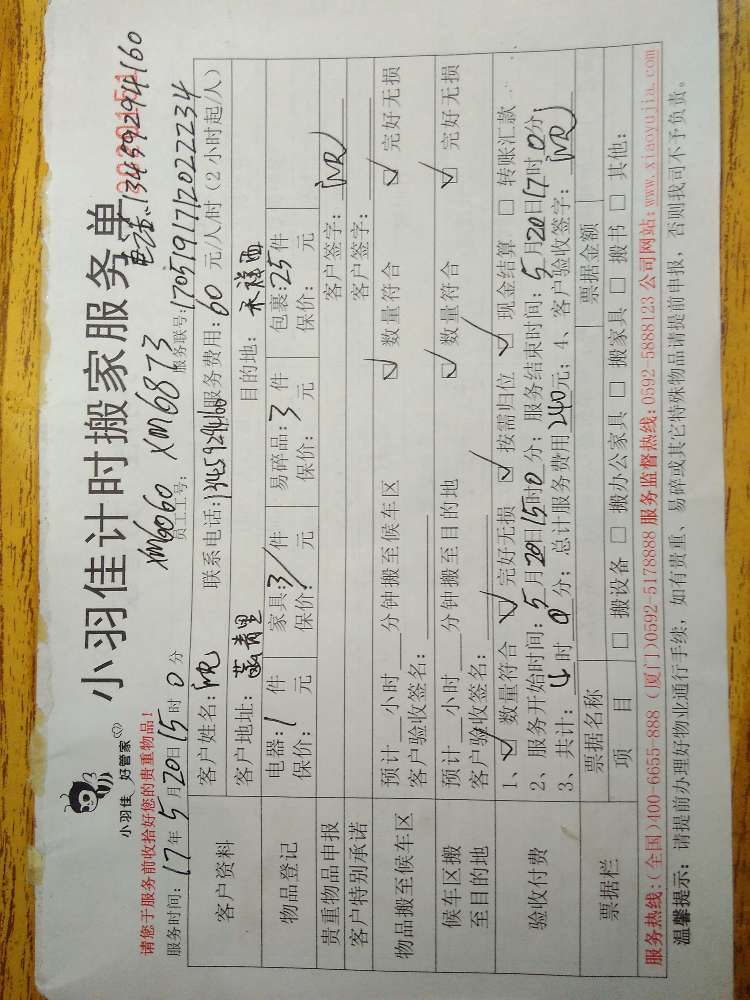 小羽佳计时搬家服务单
小羽佳 好管家
请您于服务前收拾好您的贵重物品!
电话:13459294160
员工工号: XM6060 XM6873
服务时间: 17年5月20日15时0分
服务联号: 1705191712022234
客户资料
客户姓名: 联系电话:13459294160 服务费用:60元/人/时(2小时起/人)
客户地址: 目的地:
物品登记
电器:1件 家具:3件 易碎品:3件 包裹:25件
保价:/元 保价:/元 保价:元 保价:元
贵重物品申报 客户签字:
客户特别承诺 客户签字:
物品搬至候车区
预计__小时__分钟搬至候车区 ☑ 数量符合 ☑ 完好无损
客户验收签名:
候车区搬至目的地
预计__小时__分钟搬至目的地 ☑ 数量符合 ☑ 完好无损
客户验收签名:
验收付费
1、☑ 数量符合 ☑ 完好无损 ☑ 按需归位 ☑ 现金结算 □ 转账汇款
2、服务开始时间:5月20日15时0分; 服务结束时间:5月20日17时0分;
3、共计:4时0分; 总计服务费用240元; 4、客户验收签字:
票据栏
票据名称 票据金额
项目 □ 搬设备 □ 搬办公家具 □ 搬家具 □ 搬书 □ 其他:
服务热线:(全国)400-6655-888 (厦门)0592-5178888 服务监督热线:0592-5888123 公司网站:www.xiaoyujia.com
温馨提示: 请提前办理好物业通行手续, 如有贵重、易碎或其它特殊物品请提前申报, 否则我司不予负责。